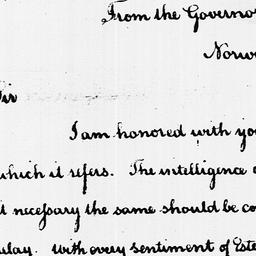 From the Governo
Norw
Sir
I am honored with yo
which it refers. The intelligence
necessary the same should be co
delay. With every sentiment of Este